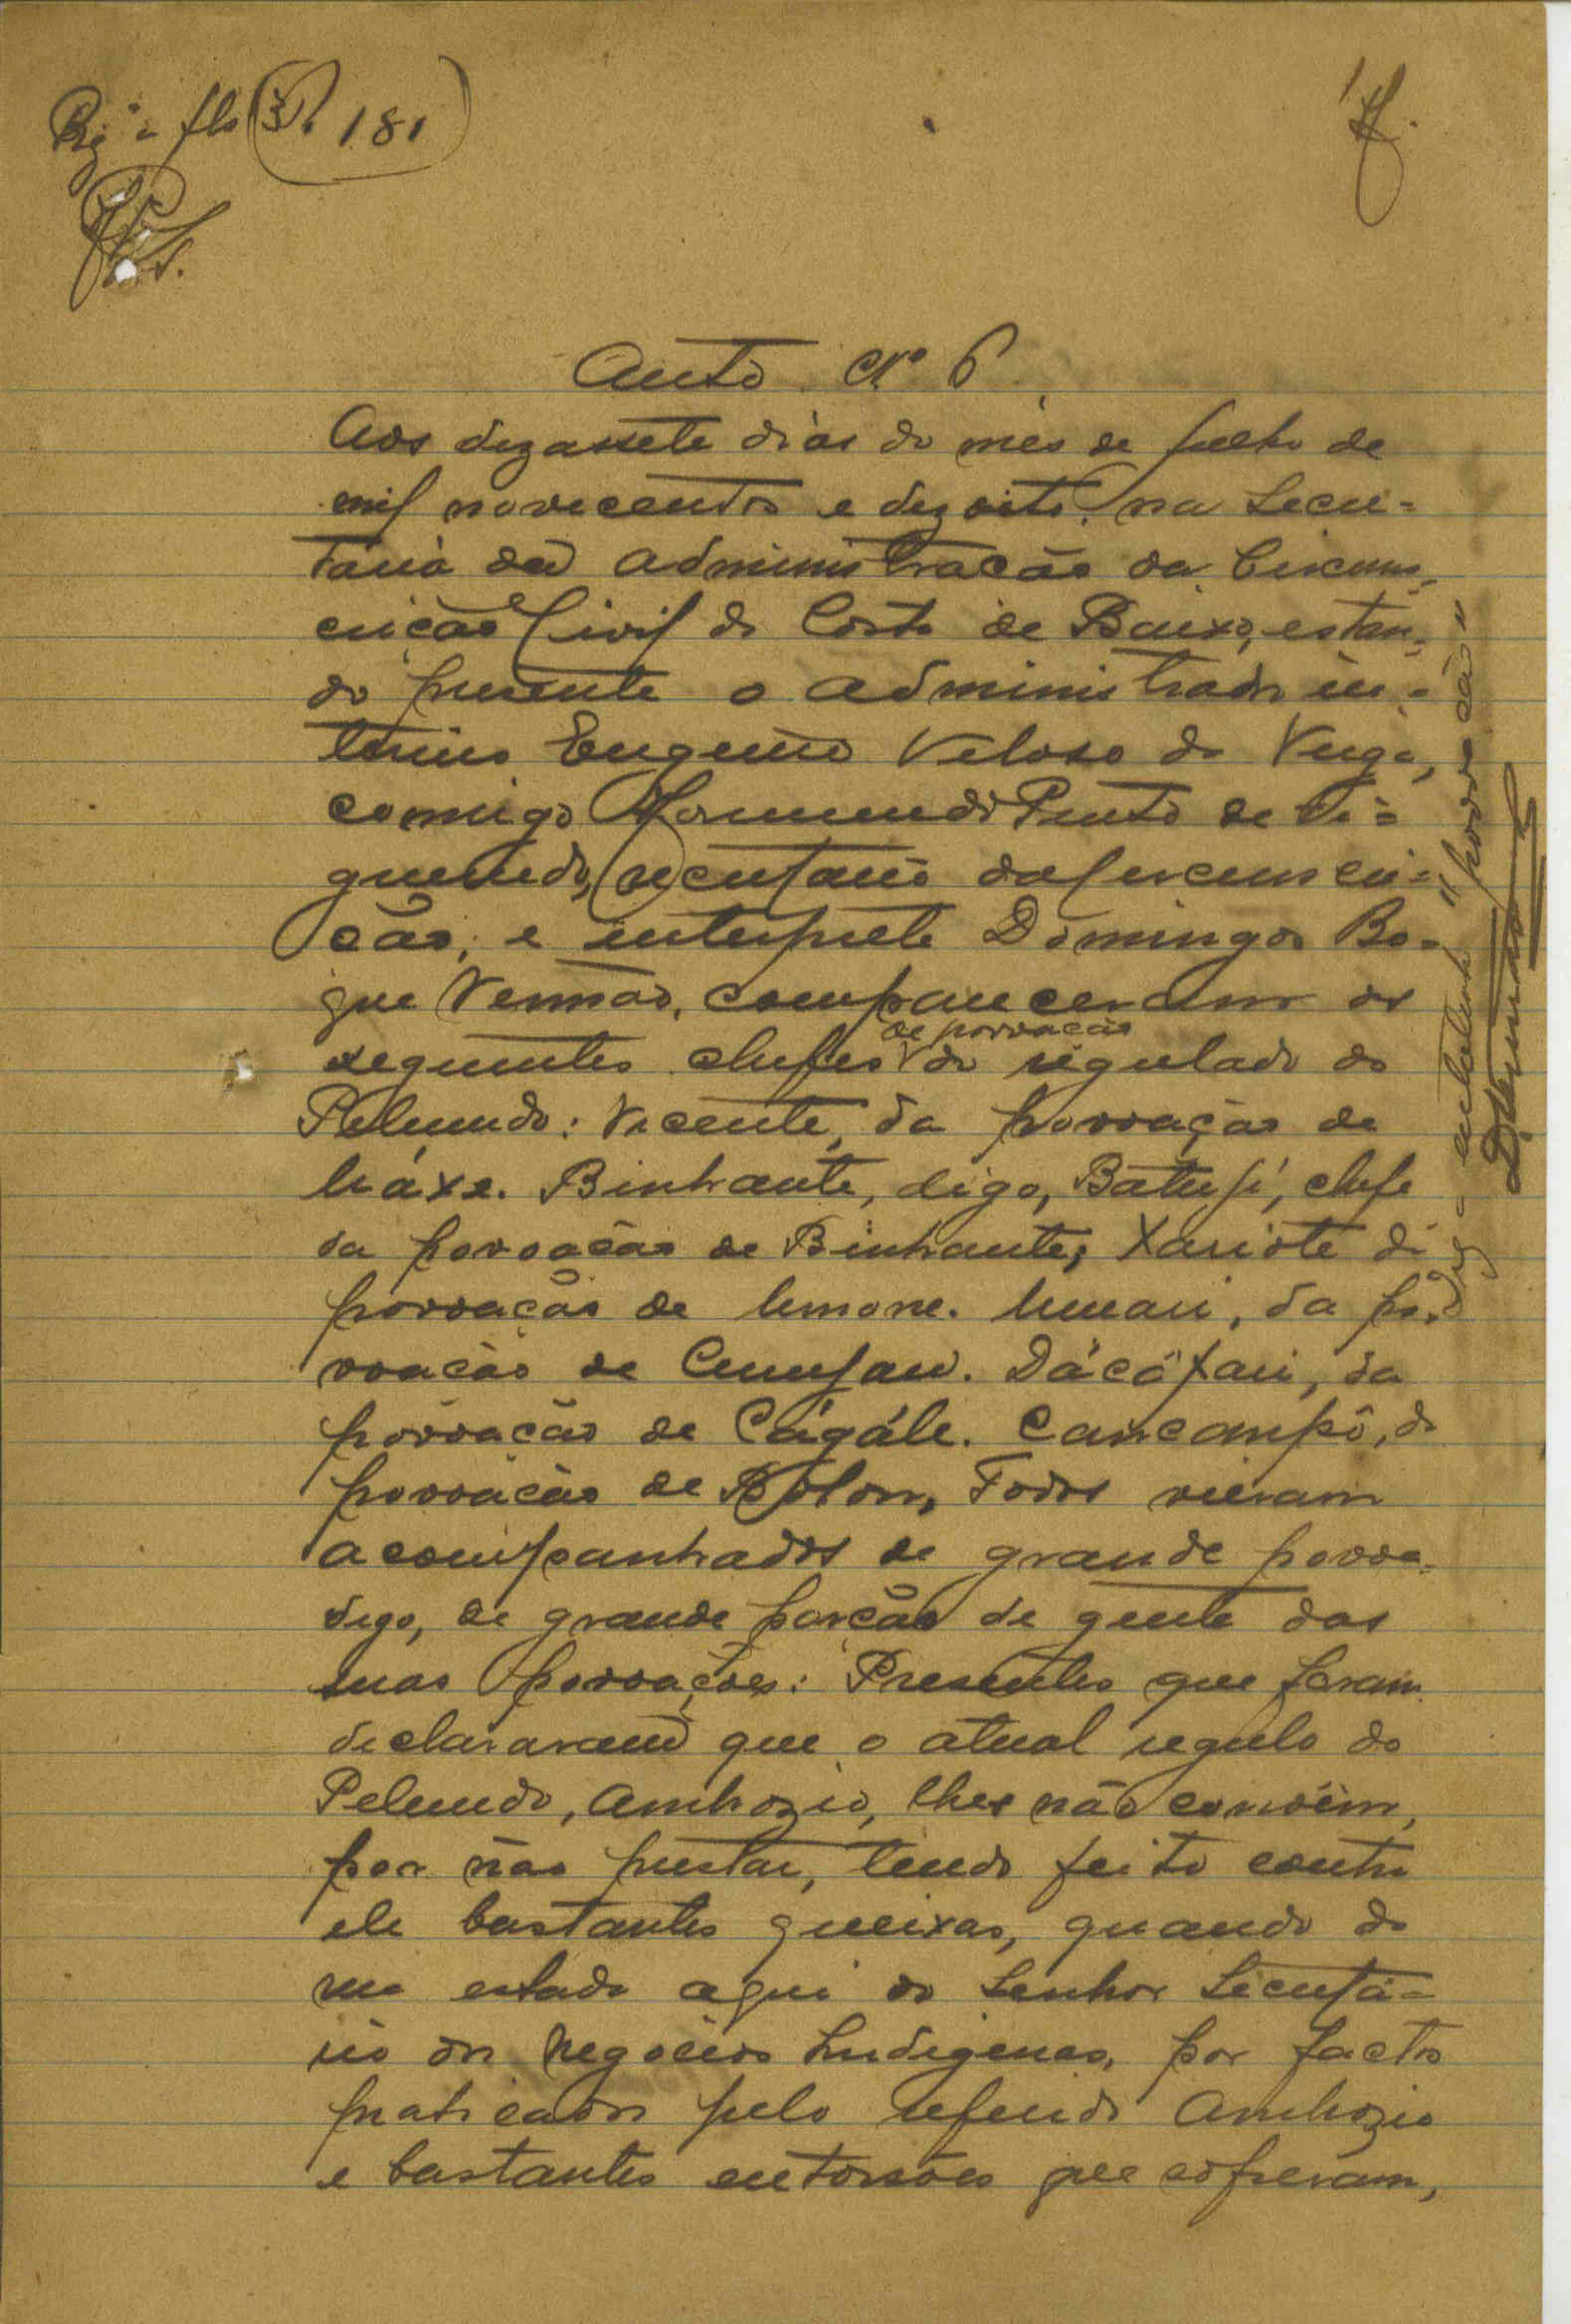 Rg.º a fls 181
Auto Nº 6
Aos dezassete dias do mês de julho de
mil novecentos e dezoito, na Secre=
taria da Administração da Circuns
crição Civil do Costa de Baixo, estan=
do presente o administrador in=
terino Eugenio Veloso da Veiga,
comigo Pinto de Fi=
gueiredo, secretario da circunscri=
ção, e interprete Domingos Bo=
que compareceram os
seguintes chefes de povoação do regulado do
Pelundo: Vicente, da povoação de
Binhante, digo, Batufi, chefe
da povoação de Binhante; Xariote da
povoação de da po=
voação de Dácófari, da
povoação de Cágále. Cancampô, da
povoação de Bolon, Todos vieram
acompanhados de grande povoa=
digo, de grande porção de gente das
suas povoações: Presentes que foram
declararam que o atual regulo do
Pelundo, Ambrozio, lhes não convêm,
por não prestar, tendo feito contra
ele bastantes queixas, quando da
vm estado aqui do Senhor Secretá=
rio dos Negocios Indigenas, por factos
praticados pelo referido Ambrozio
e bastantes extorsões que sofreram,
Digo entrelinha "povoação"